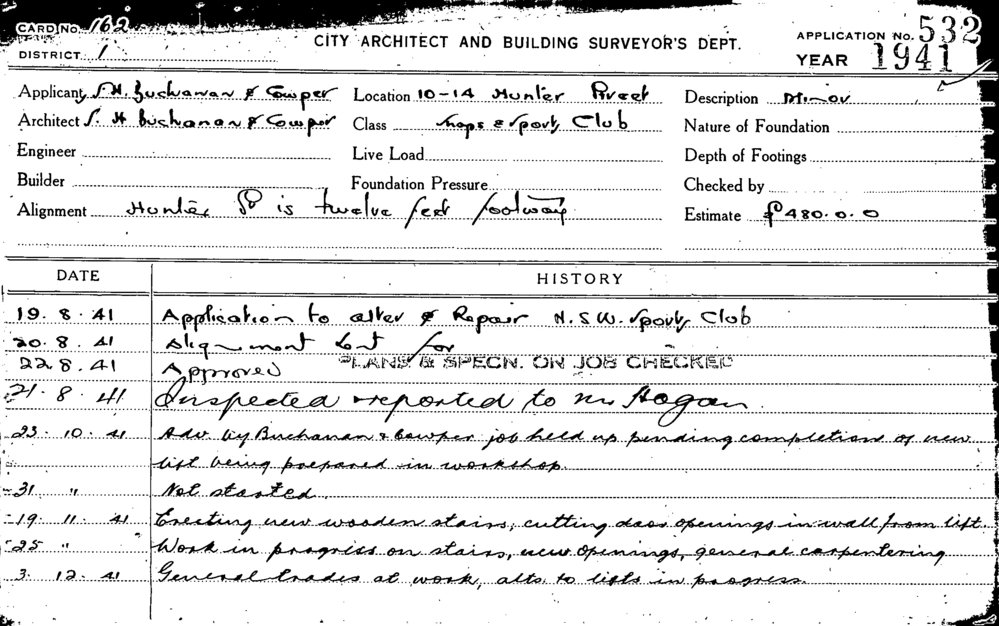 CARD NO. 162
DISTRICT 1
CITY ARCHITECT AND BUILDING SURVEYOR'S DEPT.
APPLICATION NO. 532
YEAR 1941
Applicant S. H. Buchanan & Cowper Location 10-14 Hunter Street Description Minor
Architect S. H Buchanan & Cowper Class Shops & Sports Club Nature of Foundation
Engineer Live Load Depth of Footings
Builder Foundation Pressure Checked by
Alignment Hunter St is twelve feet footway Estimate £480.0.0
DATE HISTORY
19. 8. 41 Application to alter & Repair N.S.W. Sports Club
20. 8. 41 Alignment for
22.8.41 Approved PLANS & SPECN. ON JOB CHECKED
21. 8. 41 Inspected & reported to Mr Hogan.
23. 10. 41 Adv. by Buchanan & Cowper job held up pending completion of new
lift being prepared in workshop.
31 " Not started.
19. 11. 41 Erecting new wooden stairs, cutting door openings in wall from lift.
25 " Work in progress on stairs, new openings, general carpentering
3. 12. 41 General trades at work, alts. to lifts in progress.